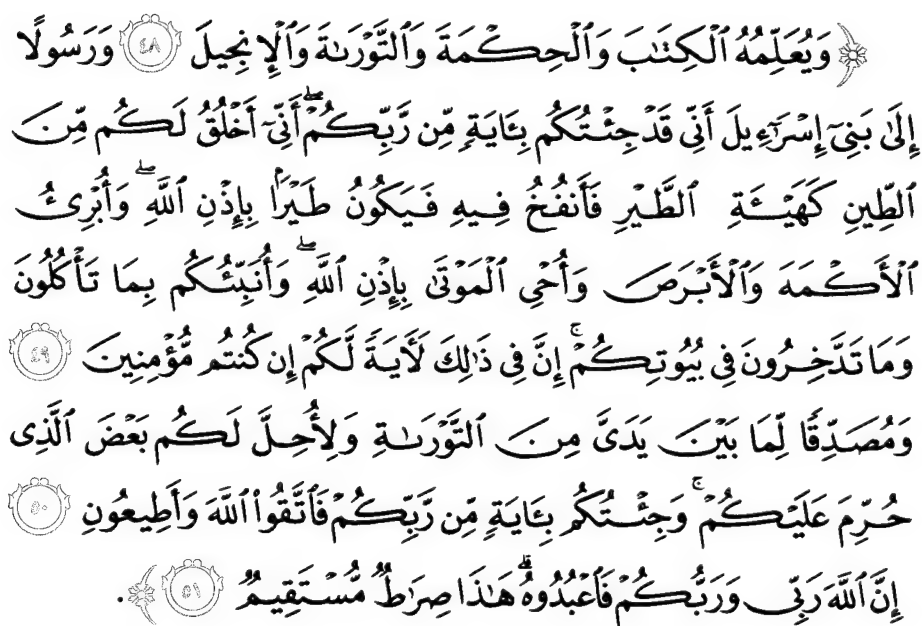 ﴿ وَيُعَلِّمُهُ ٱلْكِتَٰبَ وَٱلْحِكْمَةَ وَٱلتَّوْرَىٰةَ وَٱلْإِنجِيلَ ٤٨ وَرَسُولًا
إِلَىٰ بَنِىٓ إِسْرَٰٓءِيلَ أَنِّى قَدْ جِئْتُكُم بِـَٔايَةٍ مِّن رَّبِّكُمْ ۖ أَنِّىٓ أَخْلُقُ لَكُم مِّنَ
ٱلطِّينِ كَهَيْـَٔةِ ٱلطَّيْرِ فَأَنفُخُ فِيهِ فَيَكُونُ طَيْرًۢا بِإِذْنِ ٱللَّهِ ۖ وَأُبْرِئُ
ٱلْأَكْمَهَ وَٱلْأَبْرَصَ وَأُحْىِ ٱلْمَوْتَىٰ بِإِذْنِ ٱللَّهِ ۖ وَأُنَبِّئُكُم بِمَا تَأْكُلُونَ
وَمَا تَدَّخِرُونَ فِى بُيُوتِكُمْ ۚ إِنَّ فِى ذَٰلِكَ لَـَٔايَةً لَّكُمْ إِن كُنتُم مُّؤْمِنِينَ ٤٩
وَمُصَدِّقًا لِّمَا بَيْنَ يَدَىَّ مِنَ ٱلتَّوْرَىٰةِ وَلِأُحِلَّ لَكُم بَعْضَ ٱلَّذِى
حُرِّمَ عَلَيْكُمْ ۚ وَجِئْتُكُم بِـَٔايَةٍ مِّن رَّبِّكُمْ فَٱتَّقُوا۟ ٱللَّهَ وَأَطِيعُونِ ٥٠
إِنَّ ٱللَّهَ رَبِّى وَرَبُّكُمْ فَٱعْبُدُوهُ ۗ هَٰذَا صِرَٰطٌ مُّسْتَقِيمٌ ٥١ ﴾.